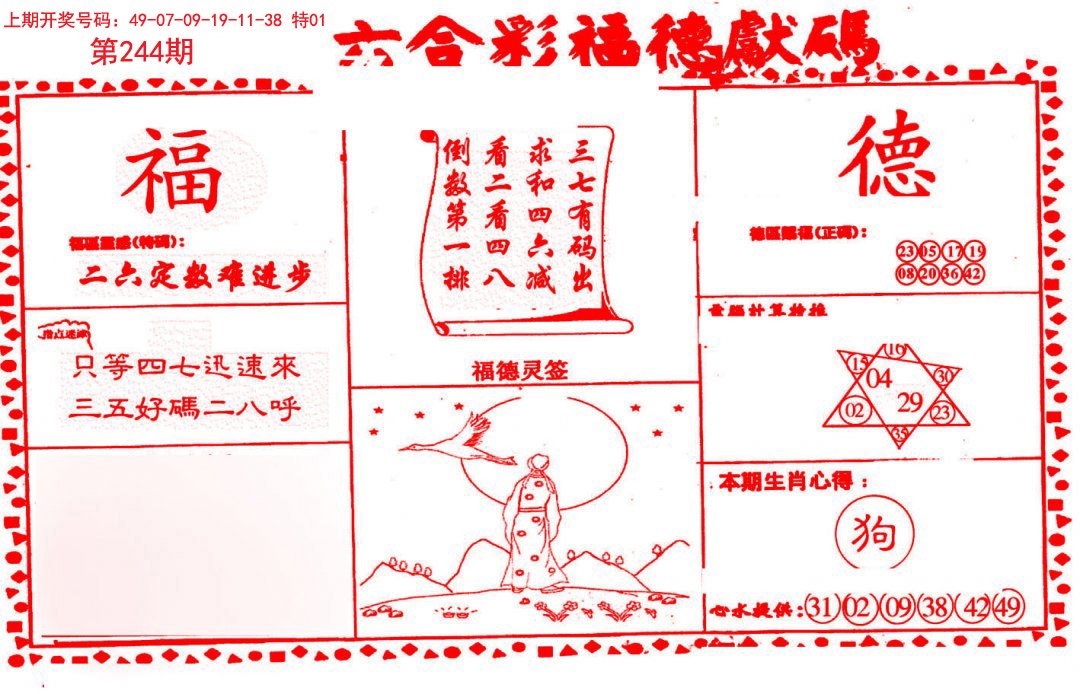 上期开奖号码：49-07-09-19-11-38 特01
第244期
六合彩福德獻碼
福
福區靈感(特碼)：
二六定数难进步
指点迷津
只等四七迅速來
三五好碼二八呼
三七有码出
求和四六减
看二看四八
倒数第一排
福德灵签
德
德區賜福(正碼)：
23 05 17 19
08 20 36 42
電腦計算特推
15 16 30
04
02 29 23
35
本期生肖心得：
狗
心水提供：31 02 09 38 42 49